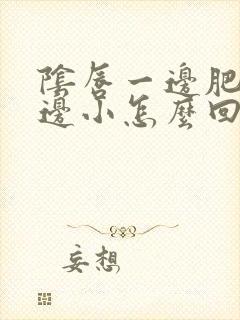 陰唇一邊肥
邊小怎麼回
妄想